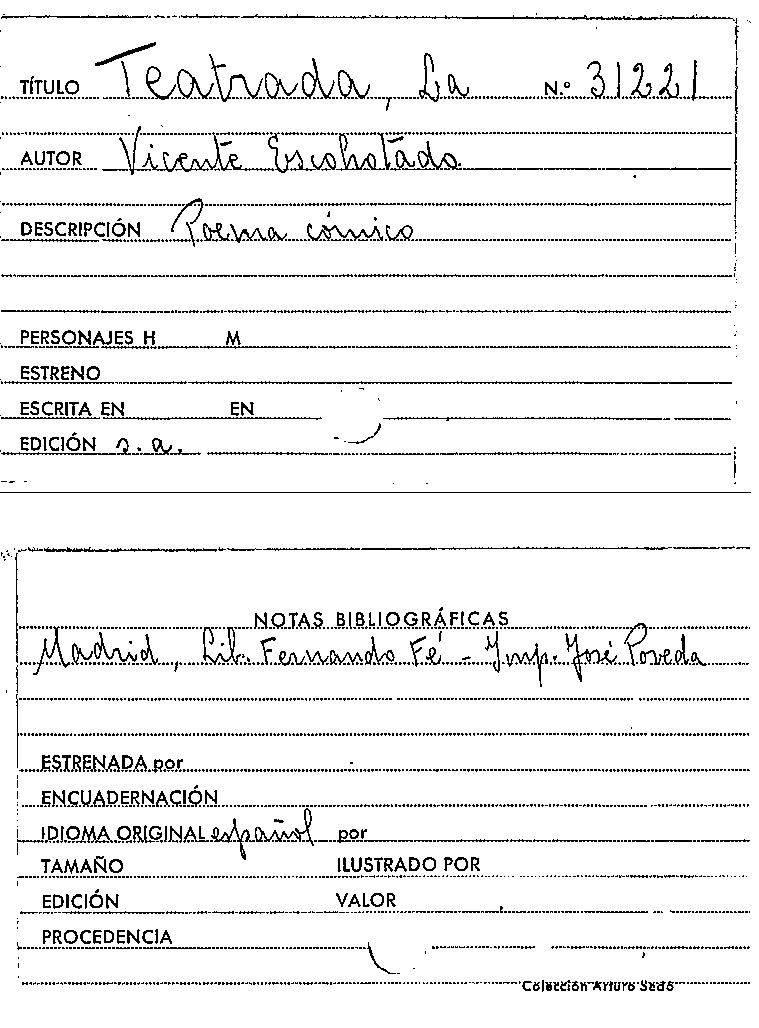 TÍTULO Teatrada, La N.º 31221
AUTOR Vicente Escohotado
DESCRIPCIÓN Poema cómico
PERSONAJES H M
ESTRENO
ESCRITA EN EN
EDICIÓN s.a.
NOTAS BIBLIOGRÁFICAS
Madrid, Lib. Fernando Fé - Imp. José Poveda
ESTRENADA por
ENCUADERNACIÓN
IDIOMA ORIGINAL español por
TAMAÑO ILUSTRADO POR
EDICIÓN VALOR
PROCEDENCIA
Colección Arturo Sedó